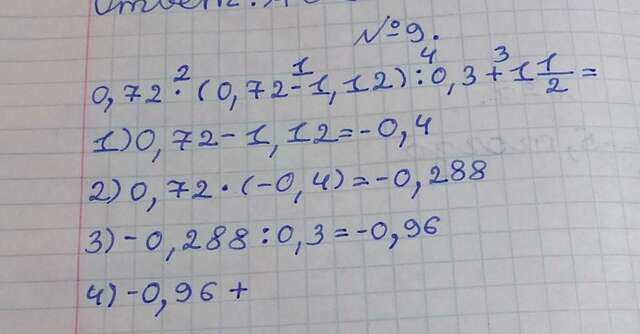 Ответ:
№9.
0,72 · (0,72 - 1,12) : 0,3 + 1 1/2 =
2 1 4 3
1) 0,72 - 1,12 = -0,4
2) 0,72 · (-0,4) = -0,288
3) -0,288 : 0,3 = -0,96
4) -0,96 +